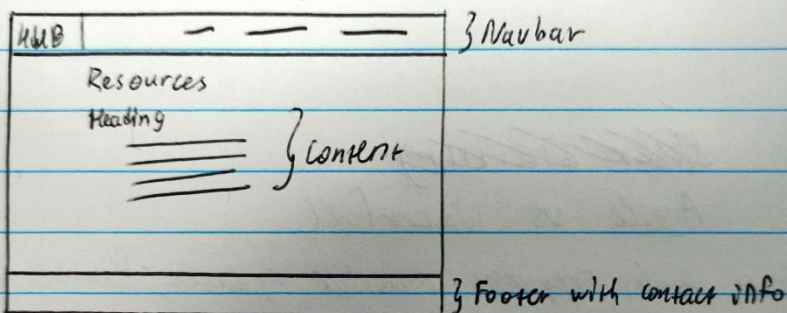 HUB
} Navbar
Resources
Heading
} Content
} Footer with contact info